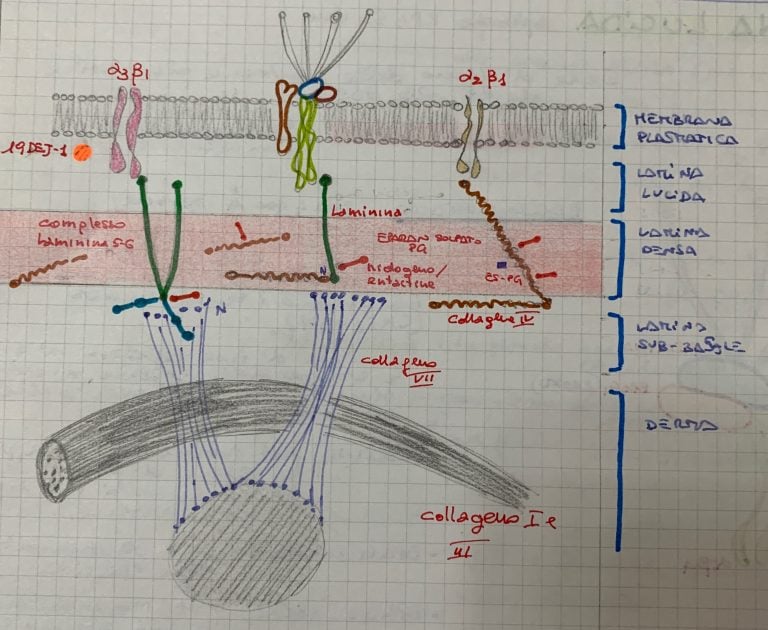 α3β1
α2β1
19DEJ-1
MEMBRANA
PLASMATICA
LAMINA
LUCIDA
complesso
Laminina 5-6
Laminina
EPARAN SOLFATO
PG
nidogeno/
entactina
N
CS-PG
LAMINA
DENSA
collageno IV
N
LAMINA
SUB-BASALE
collageno
VII
DERMA
collageno I e
III